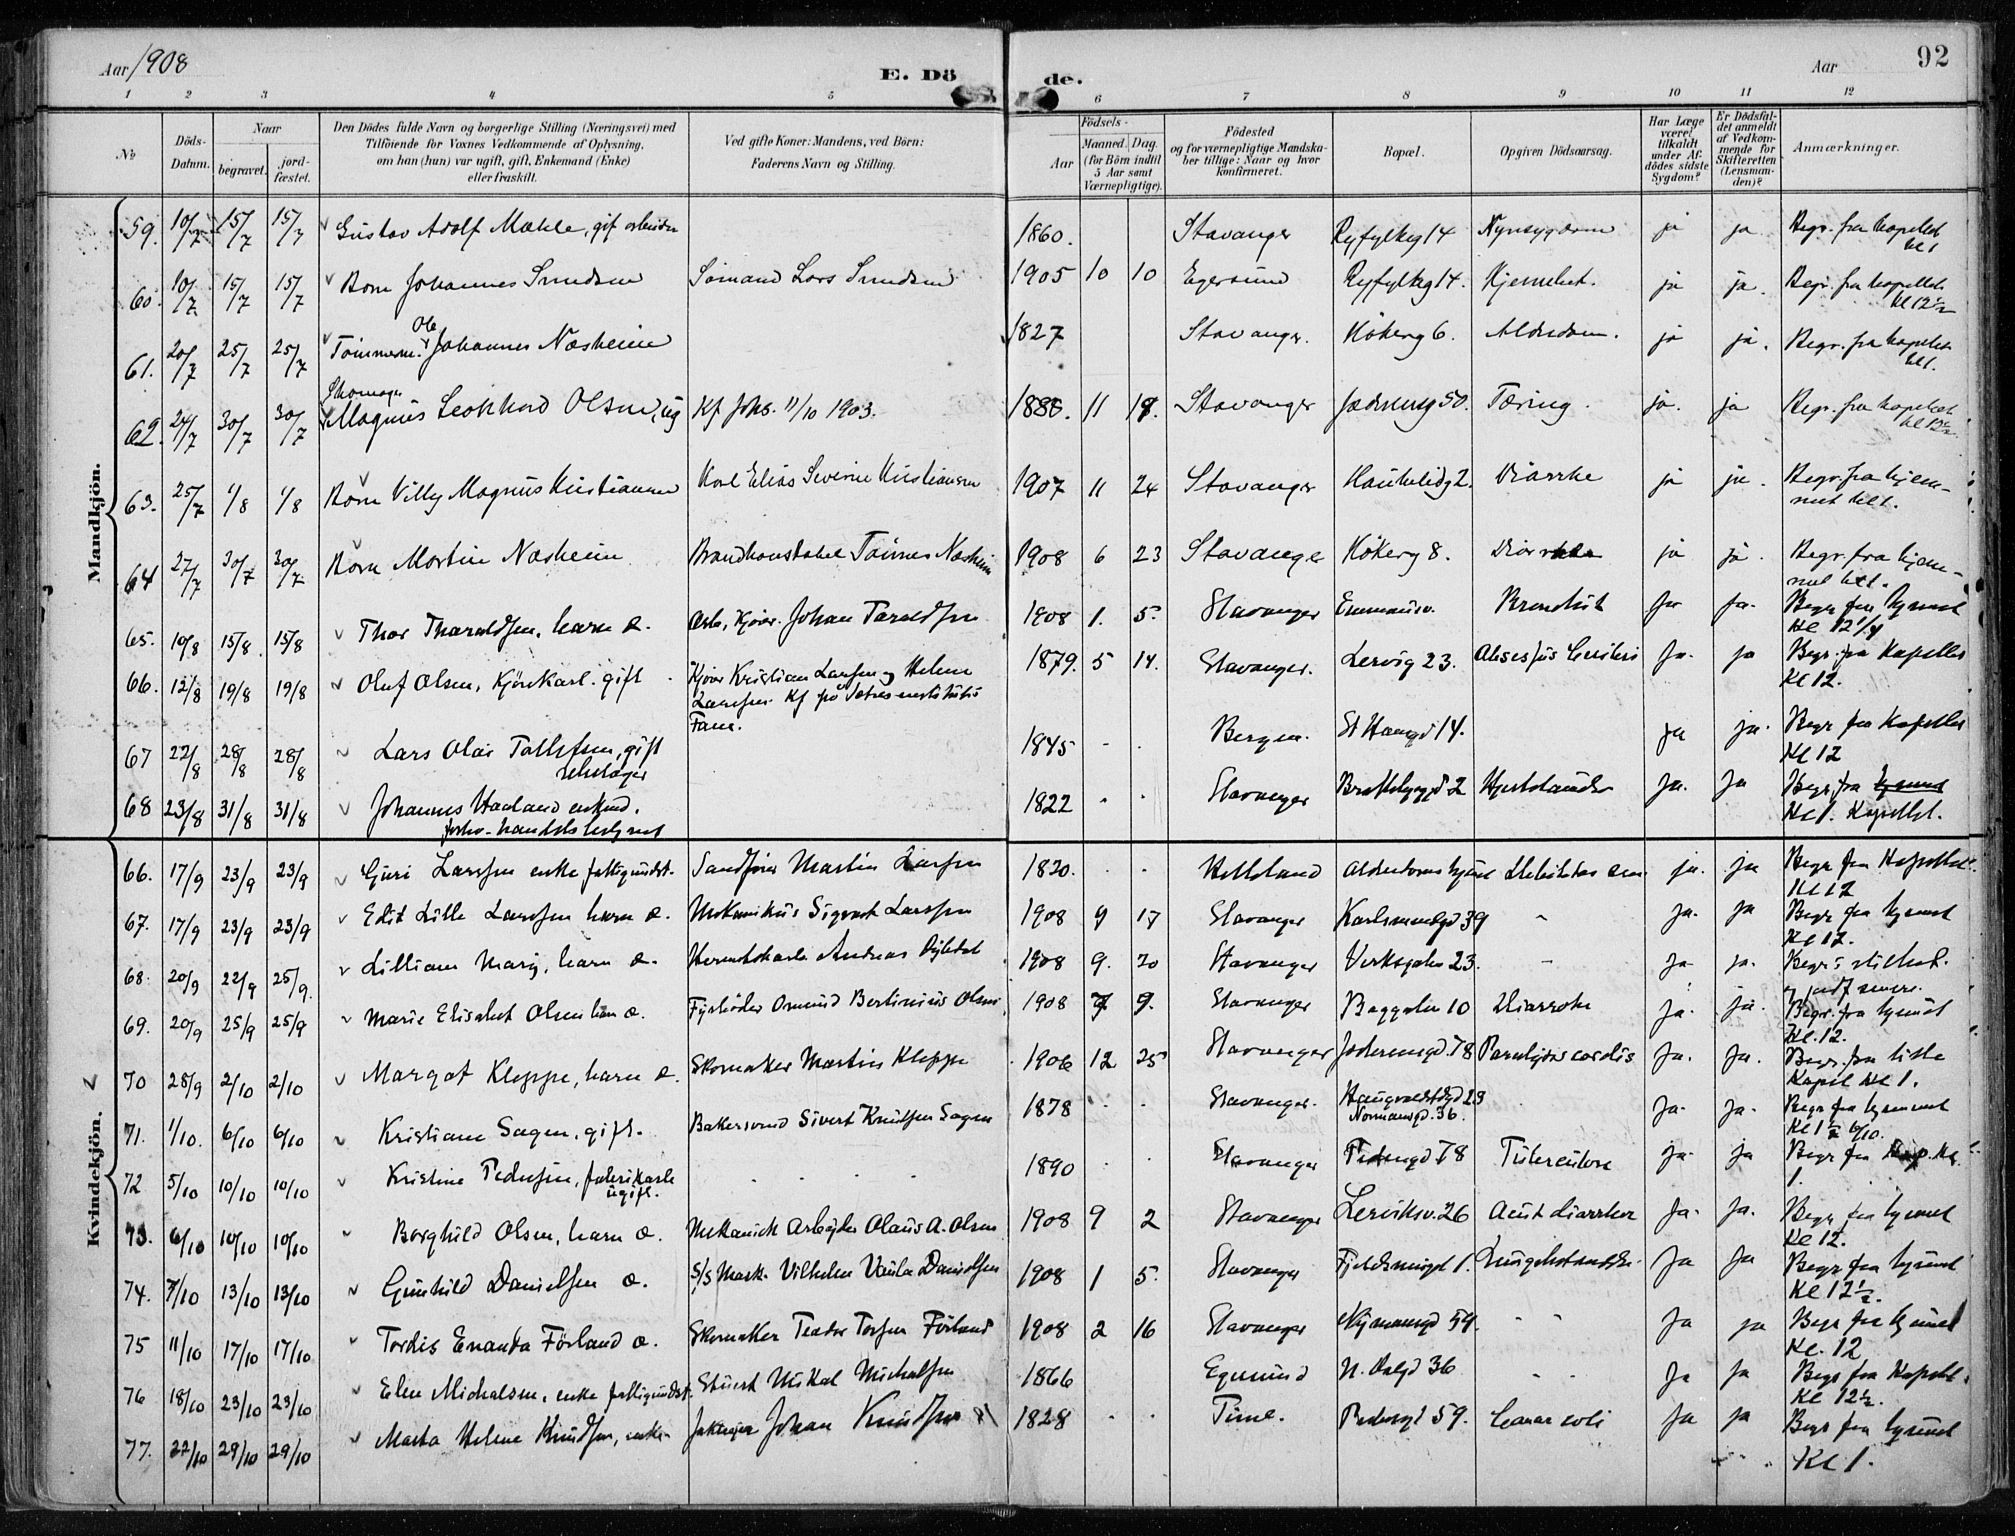 Aar 1908
E. Dö de.
Aar
92
1 2 3 4 5 6 7 8 9 10 11 12
No
Döds-Datum.
Naar
begravet.
jord-fæstet.
Den Dödes fulde Navn og borgerlige Stilling (Næringsvei) med
Tilföiende for Voxnes Vedkommende af Oplysning,
om han (hun) var ugift, gift, Enkemand (Enke)
eller fraskilt.
Ved gifte Koner: Mandens, ved Börn:
Faderens Navn og Stilling.
Födsels-
Aar
Maaned. Dag.
(for Börn indtil
5 Aar samt
Værnepligtige).
Födested
og for værnepligtige Mandska-
ber tillige: Naar og hvor
konfirmeret.
Bopæl.
Opgiven Dödsaarsag.
Har Læge
været
tilkaldt
under Af-
dödes sidste
Sygdom?
Er Dödsfal-
det anmeldt
af Vedkom-
mende for
Skifteretten
(Lensman-
den)?
Anmærkninger.
Mandkjön.
59. 10/7 15/7 15/7 Gustav Adolf Mæhle, gif arbeider 1860. Stavanger Ryfylkeg 14 Nyresygdom ja ja Begr. fra kapellet
kl 1
60. 10/7 15/7 15/7 Barn Johannes Svendsen Sömand Lars Svendsen 1905 10 10 Egersund Ryfylkeg 14. ja ja. Begr. fra kapellet
kl 12½
61. 20/7 25/7 25/7 Tömmerm. Ole Johannes Næsheim 1827 Stavanger. Kökerg 6. Alderdom. ja ja. Begr. fra kapellet
kl 1.
Skomager
62. 24/7 30/7 30/7 Magnus Leonhard Olsen, ug Kf Johs. 11/10 1903. 11 18. Stavanger Jædereng 50. Tæring. ja. ja Begr. fra kapellet
kl 12½.
63. 25/7 1/8 1/8 Barn Villy Magnus Kristiansen Karl Elias Severin Kristiansen 1907 11 24 Stavanger Haukelidg 2. Diarrhe ja ja. Begr. fra hjem-
met kl 1.
64 27/7 30/7 30/7 Barn Martin Næsheim Brandkonstabel Tönnes Næsheim 1908 6 23 Stavanger Kökerg 8. Diarrhe ja ja. Begr. fra hjem-
met kl 1.
65. 10/8 15/8 15/8 Thor Tharaldsen, barn æ. Arb, Kjörer. Johan Taraldsen 1908 1. 5. Stavanger Emmausv. ja ja. Begr. fra hjemmet
Kl 12 1/4
66. 12/8 19/8 19/8 Oluf Olsen, Kjörekarl. gift Kjörer Kristian Larsen og Helene
Larsen. Kf på
Fane. 1879. 5 14. Stavanger. Lervig 23. ja. ja Begr. fra Kapellet
Kl 12.
67 22/8 28/8 28/8 Lars Olai Tollefsen, gift
1845 - - Bergen. St Hansgd 14. ja ja. Begr fra Kapellet
Kl 12
68 23/8 31/8 31/8 Johannes Haaland enkmd.
forhv. handelsbetjent
1822 . . Stavanger 2 ja. ja Begr. fra hjemmet
Kl 1. Kapellet.
Kvindekjön.
66. 17/9 23/9 23/9 Guri Larssen enke fattigundst. Sandförer Martin Larsen 1820. . . Helleland Alderdomshjem ja. ja Begr fra Kapellet
Kl 12
67. 17/9 23/9 23/9 Edit Lille Larssen barn æ. Mekanikus Sigvart Larssen 1908 9 17 Stavanger Karlsmindegd 39 - ja. ja Begr fra hjemmet
Kl 12.
68. 20/9 22/9 25/9. Lilliam Mary, barn æ. Andreas 1908 9. 20 Stavanger Verksgaten 23. - ja ja. Begr i stilhed.
og jordf senere.
69. 20/9 25/9 25/9 Marie Elisabet Olsen barn æ. Fyrböder Osmund Bertinius Olsen 1908 7 9. Stavanger Baggaten 10 Diarrohe ja. ja. Begr. fra hjemmet
Kl. 12.
70 28/9 2/10 2/10 Margot Kleppe, barn æ. Skomaker Martin Kleppe 1906 12 25 Stavanger Jæderengd. 78 Paralysis cordis ja. ja. Begr. fra lille
Kapel Kl 1.
71. 1/10. 6/10 6/10 Kristiane Sagen, gift. Bakersvend Sivert Knutsen Sagen 1878 . . Stavanger.
Normansgd. 36. ja. ja. Begr fra hjemmet
Kl 1½ 6/10.
72 5/10 10/10 10/10 Kristine Pedersen, fabrikarb
ugift. 1890 . . Stavanger 78 Tuberculose ja. ja Begr fra Kap. Kl
1.
73. 6/10 10/10 10/10 Borghild Olsen, barn æ. Mekanisk Arbeider Olaus A. Olsen 1908 9 2 Stavanger Lerviksv. 26 Acut diarrhea ja. ja. Begr. fra hjemmet
Kl 12.
74. 7/10 13/10 13/10 Gunhild Danielsen æ. S/S Mask. Vilhelm Danielsen 1908 1 5. Stavanger 1. ja ja Begr. fra hjemmet
Kl 12½.
75 11/10 17/10 17/10 Tordis Enanda Förland æ. Skomaker Teodor Torsen Förland 1908 2 16 Stavanger 59. - - ja ja Begr fra hjemmet
Kl. 12
76 18/10 23/10 23/10 Elen Michalsen, enke fattigundst. Stuert Mikal Michalsen 1866 Egersund 36 - - ja ja Begr fra Kapellet.
Kl 12½.
77. 22/10 29/10 29/10 Marta Helene Knudsen, enke Johan Knudsen 1828 . . Time. 59. Cancer coli ja ja Begr fra hjemmet
Kl 1.